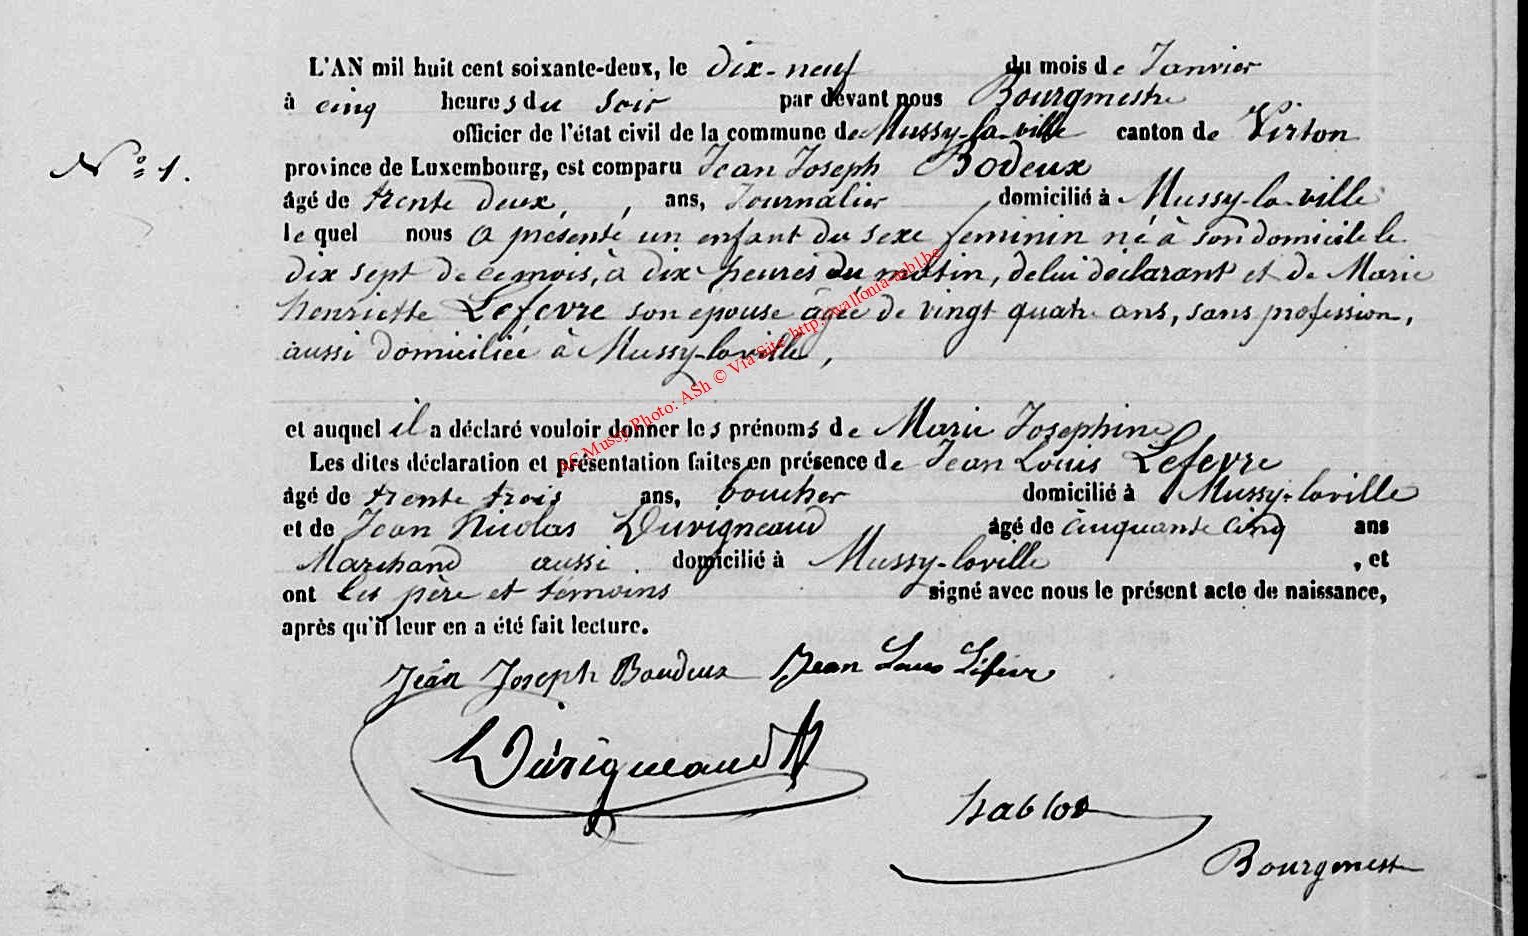 L'AN mil huit cent soixante-deux, le dix-neuf du mois de Janvier
à cinq heures du soir par devant nous Bourgmestre
officier de l'état civil de la commune de Mussy-la-ville canton de Virton
N° 1. province de Luxembourg, est comparu Jean Joseph Bodeux
âgé de trente deux, , ans, Journalier domicilié à Mussy-la-ville
lequel nous a présenté un enfant du sexe feminin né à son domicile le
dix sept de ce mois, à dix heures du matin, de lui déclarant et de Marie
henriette Lefevre son epouse âgée de vingt quatre ans, sans profession,
aussi domiciliée à Mussy-laville,
et auquel il a déclaré vouloir donner les prénoms de Marie Josephine
Les dites déclaration et présentation faites en présence de Jean Louis Lefevre
âgé de trente trois ans, boucher domicilié à Mussy-laville
et de Jean Nicolas Duvigneaud âgé de cinquante cinq ans
Marchand aussi domicilié à Mussy-laville , et
ont les père et témoins signé avec nous le présent acte de naissance,
après qu'il leur en a été fait lecture.
Jean Joseph Baudeux Jean Louis Lefevre
Duvigneaud
Bourgmestre
AC Mussy Photo: ASh © Via Site http://wallonia-asbl.be